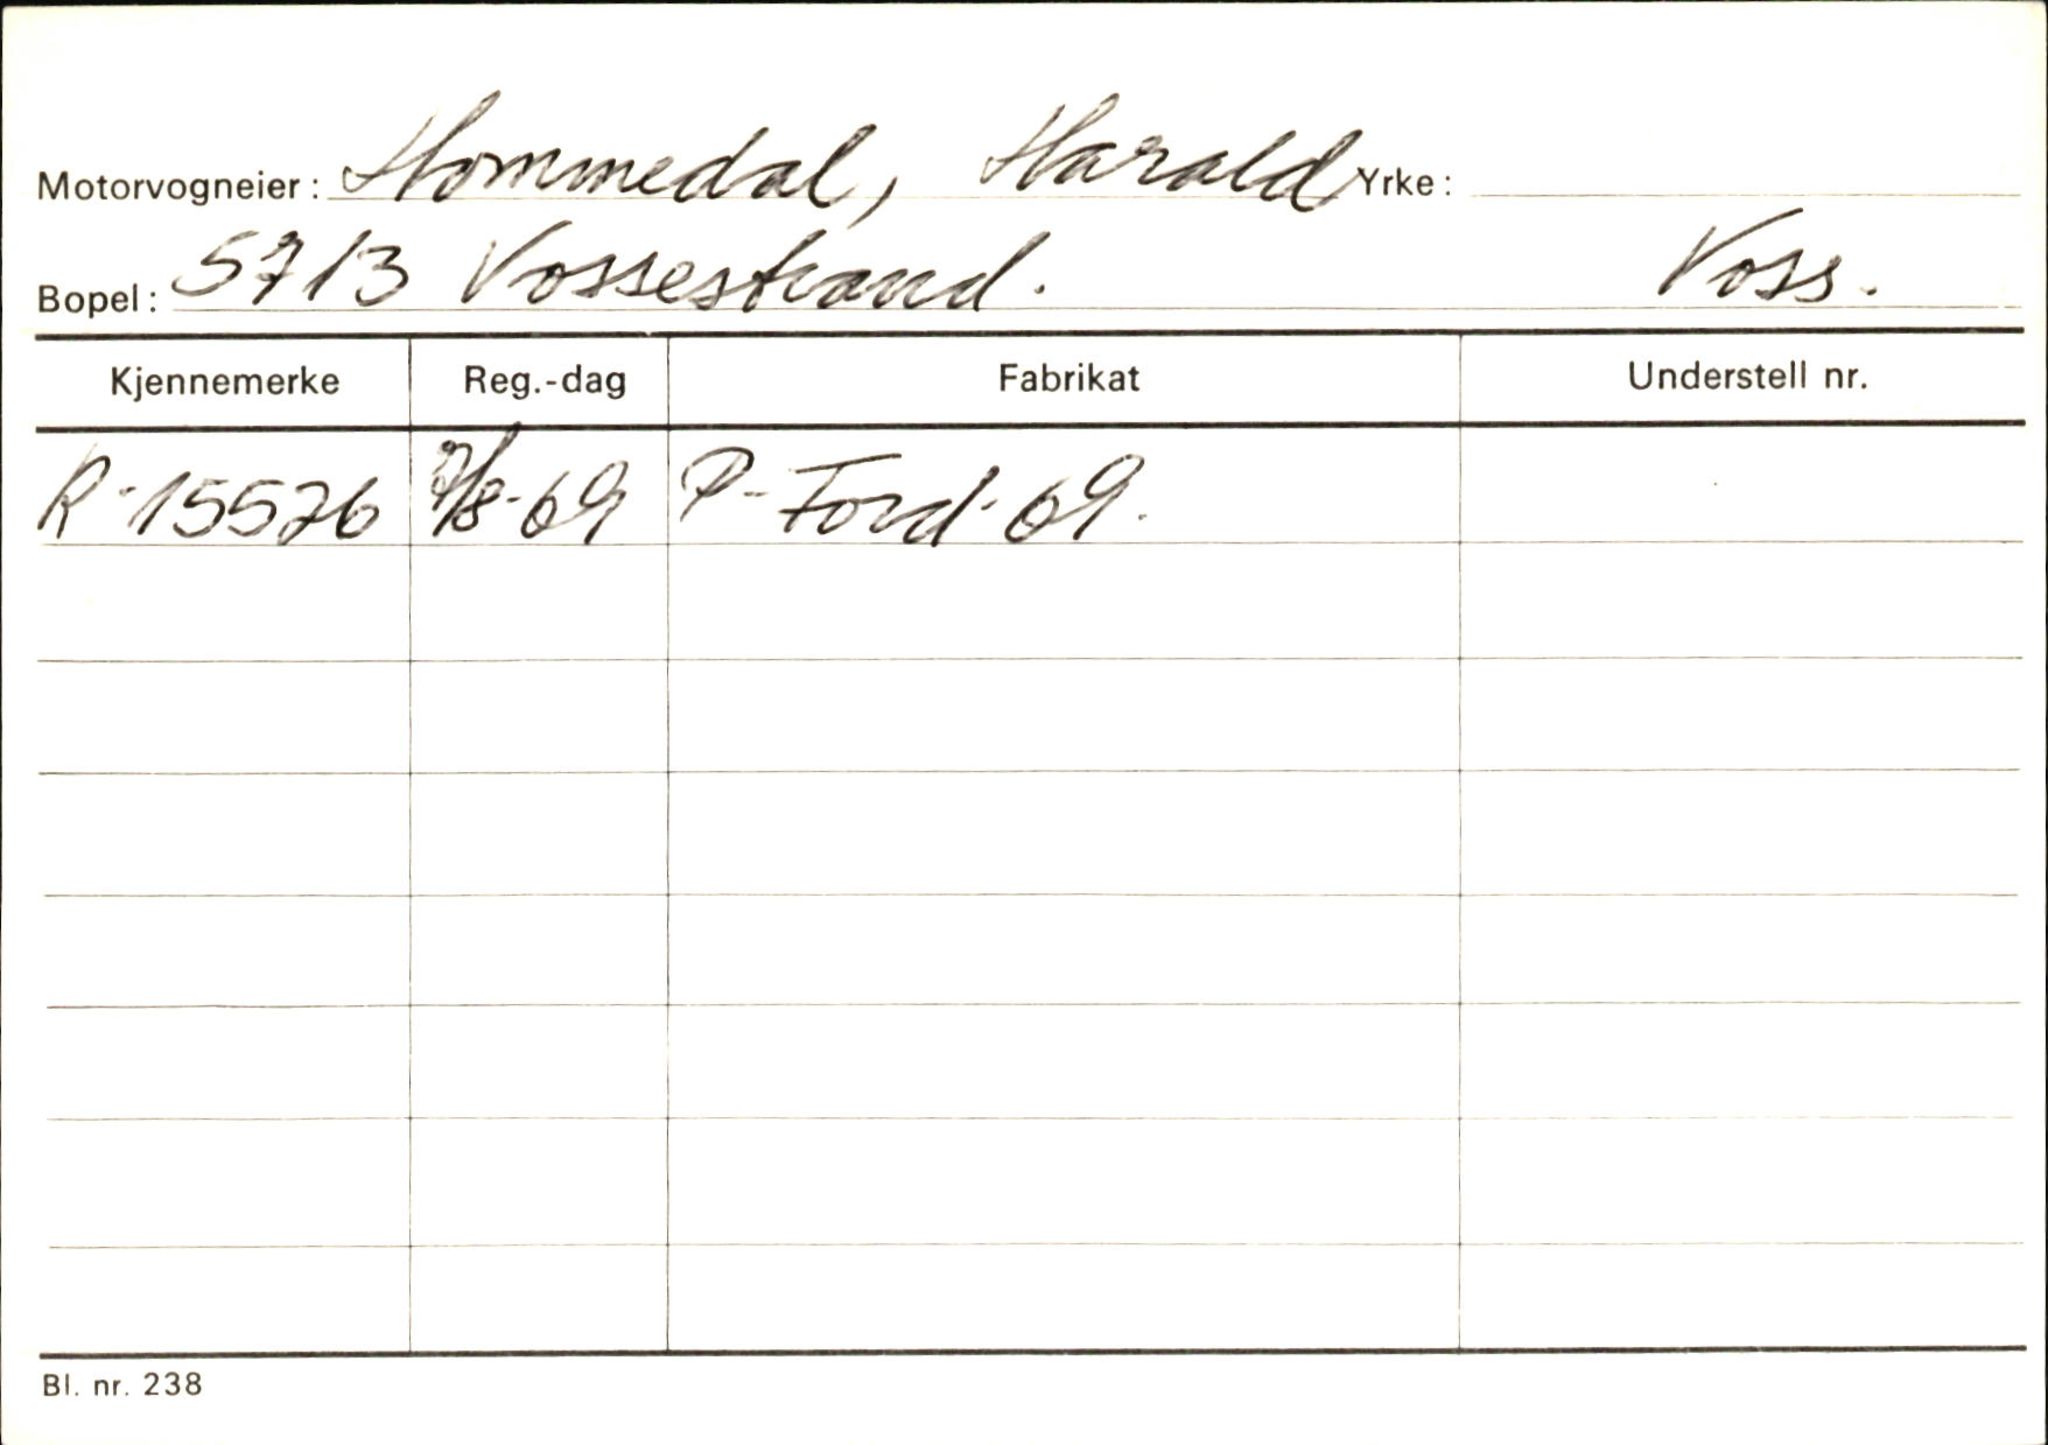 Motorvogneier: Hommedal, Harald Yrke:
Bopel: 5713 Vossestrand. Voss.
Kjennemerke Reg.-dag Fabrikat Understell nr.
R-15576 7/8-69 P-Ford-69.
Bl. nr. 238